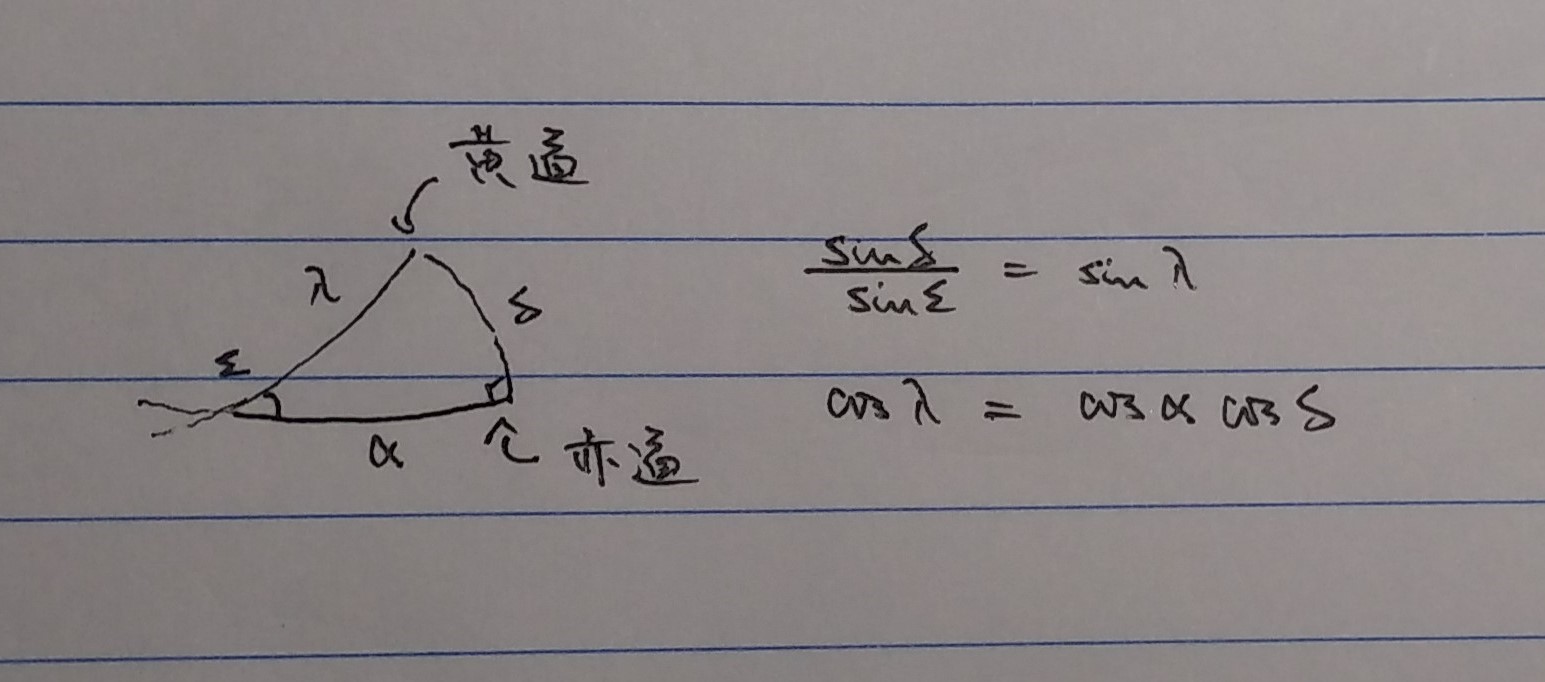 黄道
λ
δ
ε
α
赤道
sinδ/sinε = sin λ
cos λ = cos α cos δ